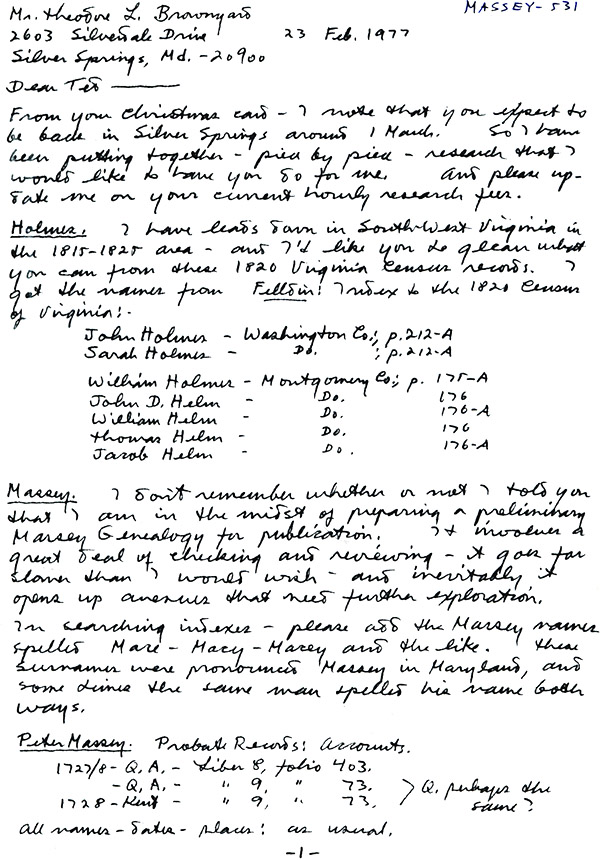 Mr. Theodore L. Brownyard
MASSEY-531
2603 Silverdale Drive
23 Feb. 1977
Silver Springs, Md. -20900
Dear Ted
From your Christmas card - I note that you expect to
be back in Silver Springs around 1 March. So I have
been putting together - piece by piece - research that I
would like to have you do for me. And please up-
date me on your current hourly research fees.
Holmes. I have leads down in SouthWest Virginia in
the 1815-1825 area - and I'd like you to glean what
you can from these 1820 Virginia Census records. I
got the names from Felldin: Index to the 1820 Census
of Virginia:-
John Holmes - Washington Co.; p.212-A
Sarah Holmes - Do. ; p.212-A
William Holmes - Montgomery Co.; p. 175-A
John D. Helm - Do. 176
William Helm - Do. 176-A
Thomas Helm - Do. 176
Jacob Helm - Do. 176-A
Massey. I don't remember whether or not I told you
that I am in the midst of preparing a preliminary
Massey Genealogy for publication. It involves a
great deal of checking and reviewing - it goes far
slower than I would wish - and inevitably it
opens up avenues that need further exploration.
In searching indexes - please add the Massey names
spelled Mace - Macy - Marcy and the like. These
surnames were pronounced Massey in Maryland, and
some times the same man spelled his name both
ways.
Peter Massey. Probate Records: Accounts.
1727/8 - Q.A. - Liber 8, folio 403.
- Q.A. - " 9, " 73. } Q. perhaps the
1728 - Kent - " 9, " 73. same?
All names - dates - places: as usual.
-1-